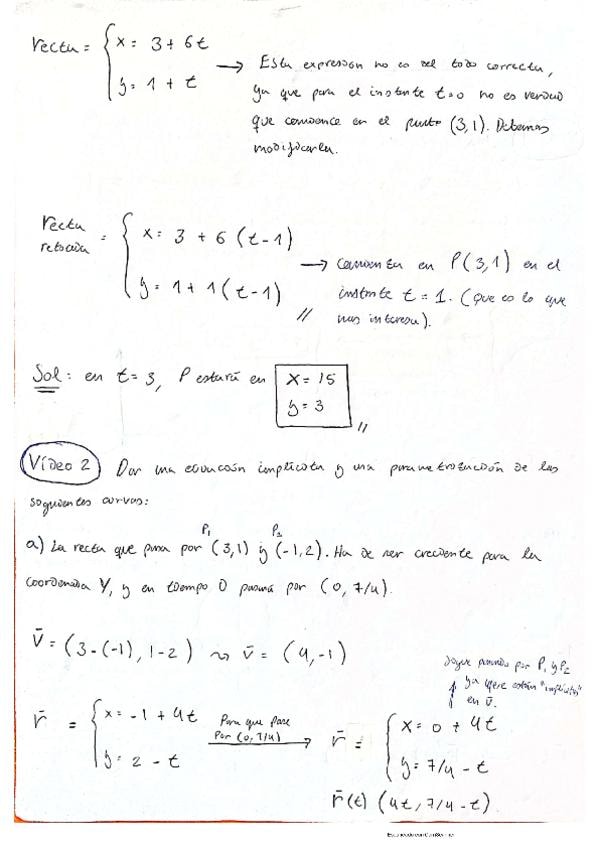 recta = { x = 3 + 6t
y = 1 + t → Esta expresión no es del todo correcta,
ya que para el instante t=0 no es verdad
que comience en el punto (3,1). Debemos
modificarla.
recta
retrasada = { x = 3 + 6 (t-1)
y = 1 + 1 (t-1) // → comienza en P(3,1) en el
instante t = 1. (que es lo que
nos interesa).
Sol: en t=3, P estará en x = 15
y = 3 //
Vídeo 2 Dar una ecuación implícita y una parametrización de las
siguientes curvas:
P1 P2
a) La recta que pasa por (3,1) y (-1,2). Ha de ser creciente para la
coordenada Y, y en tiempo 0 pasará por (0, 7/4).
v̄ = (3-(-1), 1-2) ⇝ v̄ = (4,-1)
Sigue pasando por P1 y P2
ya que están "implícitos"
en v̄.
r̄ = { x = -1 + 4t
y = 2 - t
Para que pase
por (0, 7/4) →
r̄ = { x = 0 + 4t
y = 7/4 - t
r̄(t) (4t, 7/4 - t).
Escaneado con CamScanner